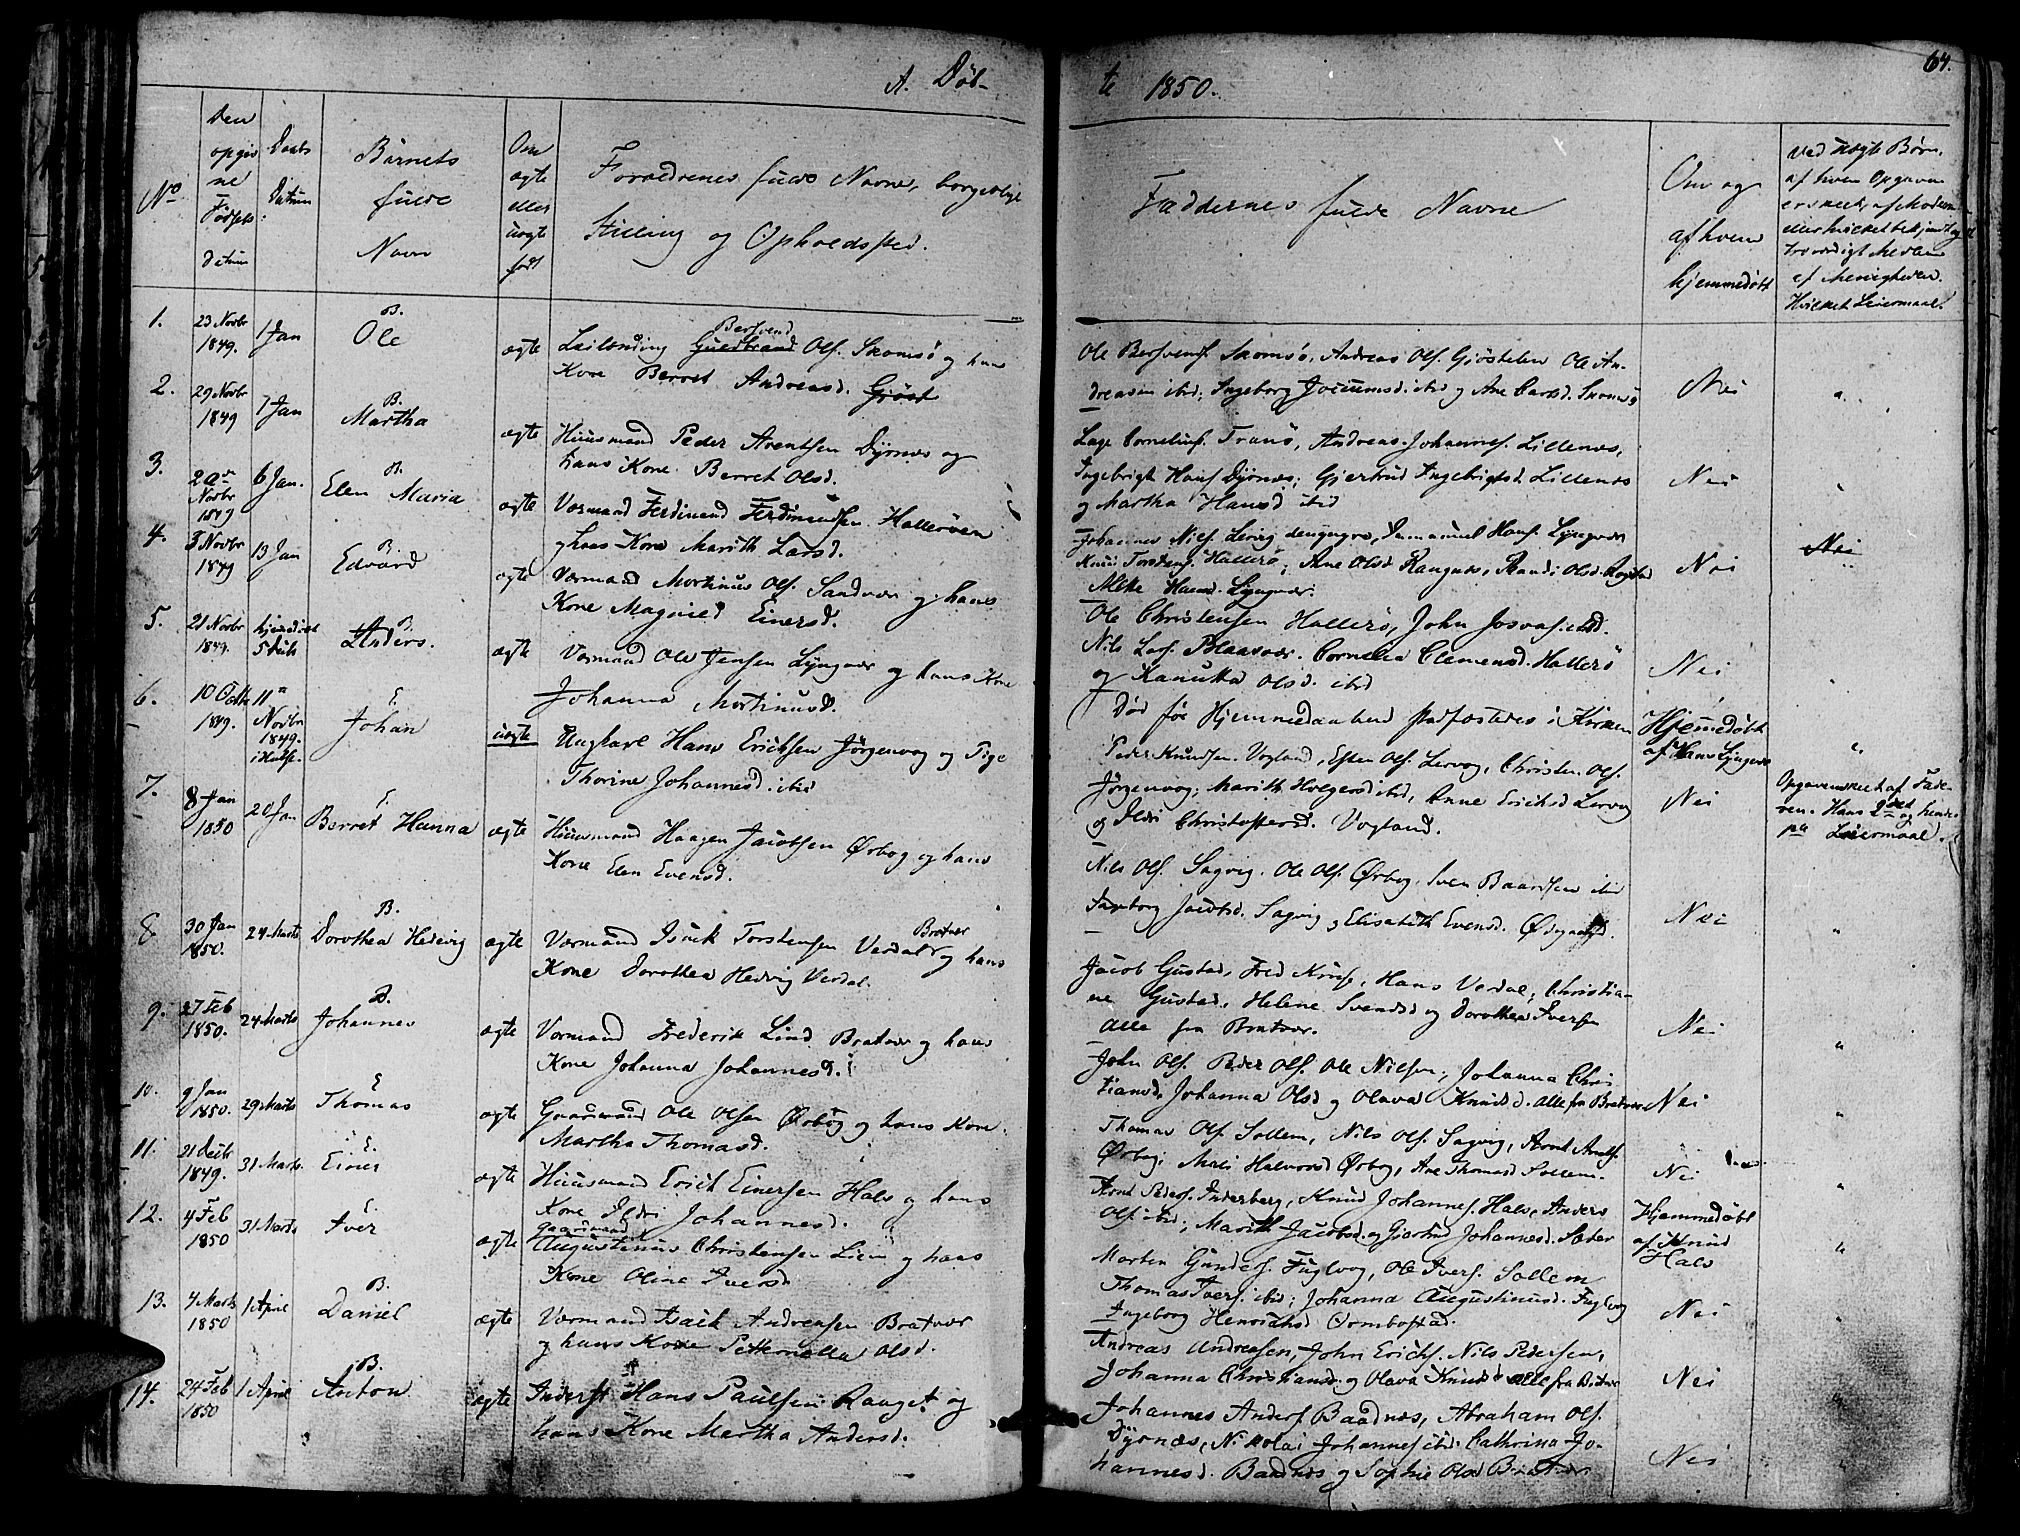 64.
A. Døb-
te 1850.
No
Den opgivne Fødsels Datum
Daabs Datum
Barnets fulde Navn
Om ægte eller uægte født
Forældrenes fulde Navne, borgerlige
Stilling og Opholdsted.
Faddernes fulde Navne
Om og af hvem hjemmedøbt
Ved uægte Børn,
af hvem Opgaven
er skeet, af Moderen
eller hvilket bekjendt og
troværdigt Medlem
af Menigheden.
Hvilket Leiermaal.
1. 23 Novbr 1849. 1 Jan B. Ole ægte
Leilending Guldbrand Bersvend Ols. Skomsø og hans
Kone Berret Andreasd. Gjøst
Ole Bersvends. Skomsø, Andreas Ols. Gjøstelen Ole An-
dreasen ibid; Ingeborg Jocumsd. ibid og Ane Larsd. Skomsø
Nei
2. 29 Novbr 1849 1 Jan B. Martha ægte
Huusmand Peder Arentsen Dyrnæs og
hans Kone Berret Olsd.
Lage Cornelius. Tranø, Andreas Johannes. Lillenæs,
Ingebrigt Hans. Dyrnæs; Gjertrud Ingebrigtsd. Lillenæs
og Martha Hansd ibid
Nei
3. Novbr 1849 6 Jan. B. Elen Maria ægte
Vormand Ferdinand Ferdinandsen Hallerøen
og hans Kone Marith Larsd.
Johannes Niels. Lervig, Immanuel Hans. Lyngvær
Knud Torstens. Hallerø, Ane Olsd Rangnæs, Randi Olsd.
Mette Hansd. Lyngvær.
Nei Nei
4. 3 Novbr 1849 13 Jan B. Edvard ægte
Vormand Mortinus Ols. Sandvær og hans
Kone Magnild Einersd.
Ole Christensen Hallerø, John Josvas. ibid.
Nils Lars. Blaasvær. Cornelia Clemensd. Hallerø
og Kanutta Olsd. ibid
Nei
5. 21 Novbr 1849. hjemmedøbt 5 Decb B. Anders. ægte
Vormand Ole Jensen Lyngvær og hans Kone
Johanna Mortinusd.
Død før Hjemmedaaben stadfæstedes i Kirken
Hjemmedøbt af Hans Lyngvær
6. 10 Octb 1849. 11 Novbr 1849. E. Johan uægte
Ungkarl Hans Erichsen Jørgenvog og Pige
Thorine Johannesd. ibid
Peder Knudsen. Vogland, Esten Ols. Lervog, Christen. Ols.
Jørgenvog; Marith Holgersd ibid, Anne Erichsd Lervog
og Ildri Christophersd. Vogland.
Nei
Opgaven skeet af Fade-
ren. Hans 2det og hendes
Leiermaal.
7. 8 Jan 1850 20 Jan E. Berret Hanna ægte
Huusmand Haagen Jacobsen Ørbog og hans
Kone Elen Evensd.
Nils Ols. Sagvig. Ole Ols. Ørbog, Sven Baardsen ibid
Ingborg Jacobsd. Sagvig og Elisabeth Evensd. Ødegaard.
Nei
8 30 Jan 1850. 24 Marts B. Dorothea Hedevig ægte
Vormand Isack Torstensen Verdal Bratvær og hans
Kone Dorothea Hedvig Verdal.
Jacob Gustad, Fred Kruse, Hans Verdal; Christia-
ne Gustad, Helene Svendsd og Dorothea Iversen
alle fra Bratvær.
Nei
9. 27 Feb 1850. 24 Marts B. Johannes ægte
Vormand Frederik Lind Bratvær og hans
Kone Johanna Johannesd.
John Ols. Peder Ols. Ole Nilsen; Johanna Chris
tiansd, Johanna Olsd og Olava Knudsd. alle fra Bratvær
Nei
10. 9 Jan 1850. 29 Marts E Thomas ægte
Gaardmand Ole Olsen Ørbog og hans Kone
Martha Thomasd.
Thomas Ols. Sollem, Nils Ols. Sagvig, Arnt Arnts.
Ørbog; Mali Halvorsd Ørbog, Ane Thomasd Sollem.
Nei
11. 21 Decb 1849. 31 Marts E. Einer ægte
Huusmand Erick Einersen Hals og hans
Kone Ildri Johannesd.
Arnt Peders. Inderberg, Knud Johannes. Hals, Anders
Ols. ibid; Marith Jacobsd. og Gjertrud Johannesd. Sæter
Hjemmedøbt af Knud Hals
12. 4 Feb 1850 31 Marts E Iver ægte
Gaardmand
Augustinus Christensen Lien og hans
Kone Oline Iversd
Morten Gunders. Fuglvog, Ole Ivers. Sollem
Thomas Ivers. ibid; Johanna Augustinusd. Fuglvog
Ingeborg Henrichsd Ormbostad.
Nei
13. 4 Marts 1850 1 April B. Daniel ægte
Vormand Isack Andreasen Bratvær
og hans Kone Petternella Olsd.
Andreas Andreasen, John Erichs. Nils Pedersen,
Johanna Christiansd. og Olava Knudsd alle fra Bratvær
Nei
14. 24 Feb 1850 1 April B. Anton ægte
Inderst Hans Paulsen Ranget og
hans Kone Martha Andersd.
Johannes Anders. Baadnæs, Abraham Ols.
Dyrnæs, Nikolai Johannes. ibid. Cathrina Jo-
hannesd. Baadnæs og Sophie Olsd Bratvær
Nei